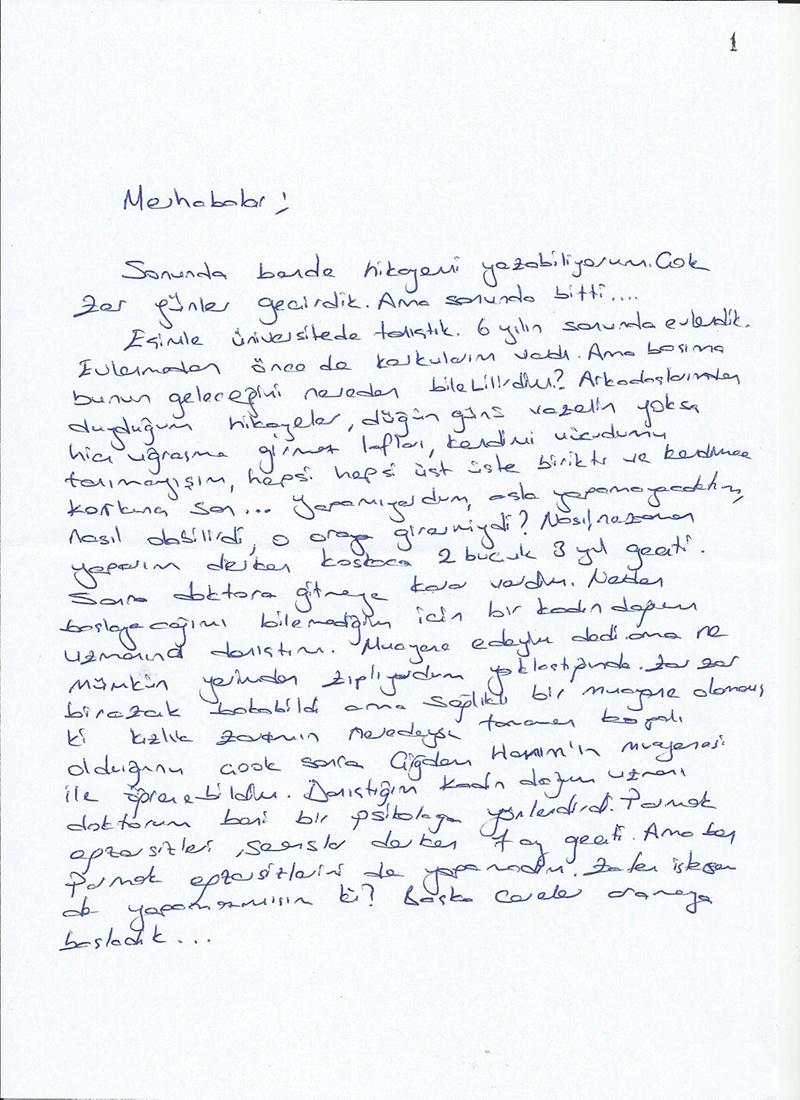 1
Merhabalar;
Sonunda bende hikayemi yazabiliyorum. Çok
zor günler geçirdik. Ama sonunda bitti....
Eşimle üniversitede tanıştık. 6 yılın sonunda evlendik.
Evlenmeden önce de korkularım vardı. Ama başıma
bunun geleceğini nereden bilebilirdim? Arkadaşlarımdan
duyduğum hikayeler, düğün günü vazelin yoksa
hiç uğraşma girmez lafları, kendimi vücudumu
tanımayışım, hepsi hepsi üst üste birikti ve kendimce
korkuna son... Yapamıyordum, asla yapamayacaktım,
nasıl olabilirdi, o oraya girermiydi? Nasıl, ne zaman
yaparım derken koskoca 2 buçuk 3 yıl geçti.
Sonra doktora gitmeye karar verdim. Nerden
başlayacağımı bilemediğim için bir kadın doğum
uzmanına danıştım. Muayene edeyim dedi ama ne
mümkün yerimden zıplıyordum yaklaştığında. Zar zor
birazcık bakabildi ama sağlıklı bir muayene olamamış
ki kızlık zarımın neredeyse tamamen kapalı
olduğunu çook sonra Çiğdem Hanım'ın muayenesi
ile öğrenebildim. Danıştığım kadın doğum uzmanı
doktorum beni bir psikoloğa yönlendirdi. Parmak
egzersizleri, seanslar derken 7 ay geçti. Ama ben
Parmak egzersizlerini de yapamadım. Zaten istesen
de yapamazmışsın ki? Başka çareler aramaya
başladık...